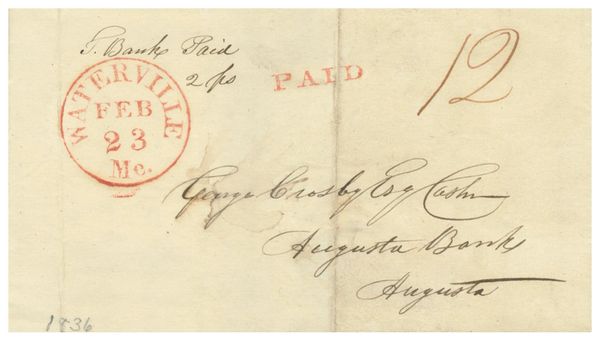 T. Bank Paid
2 ps
PAID
12
WATERVILLE
FEB
23
Me.
George Crosby Esq Cashr
Augusta Bank
Augusta
1836